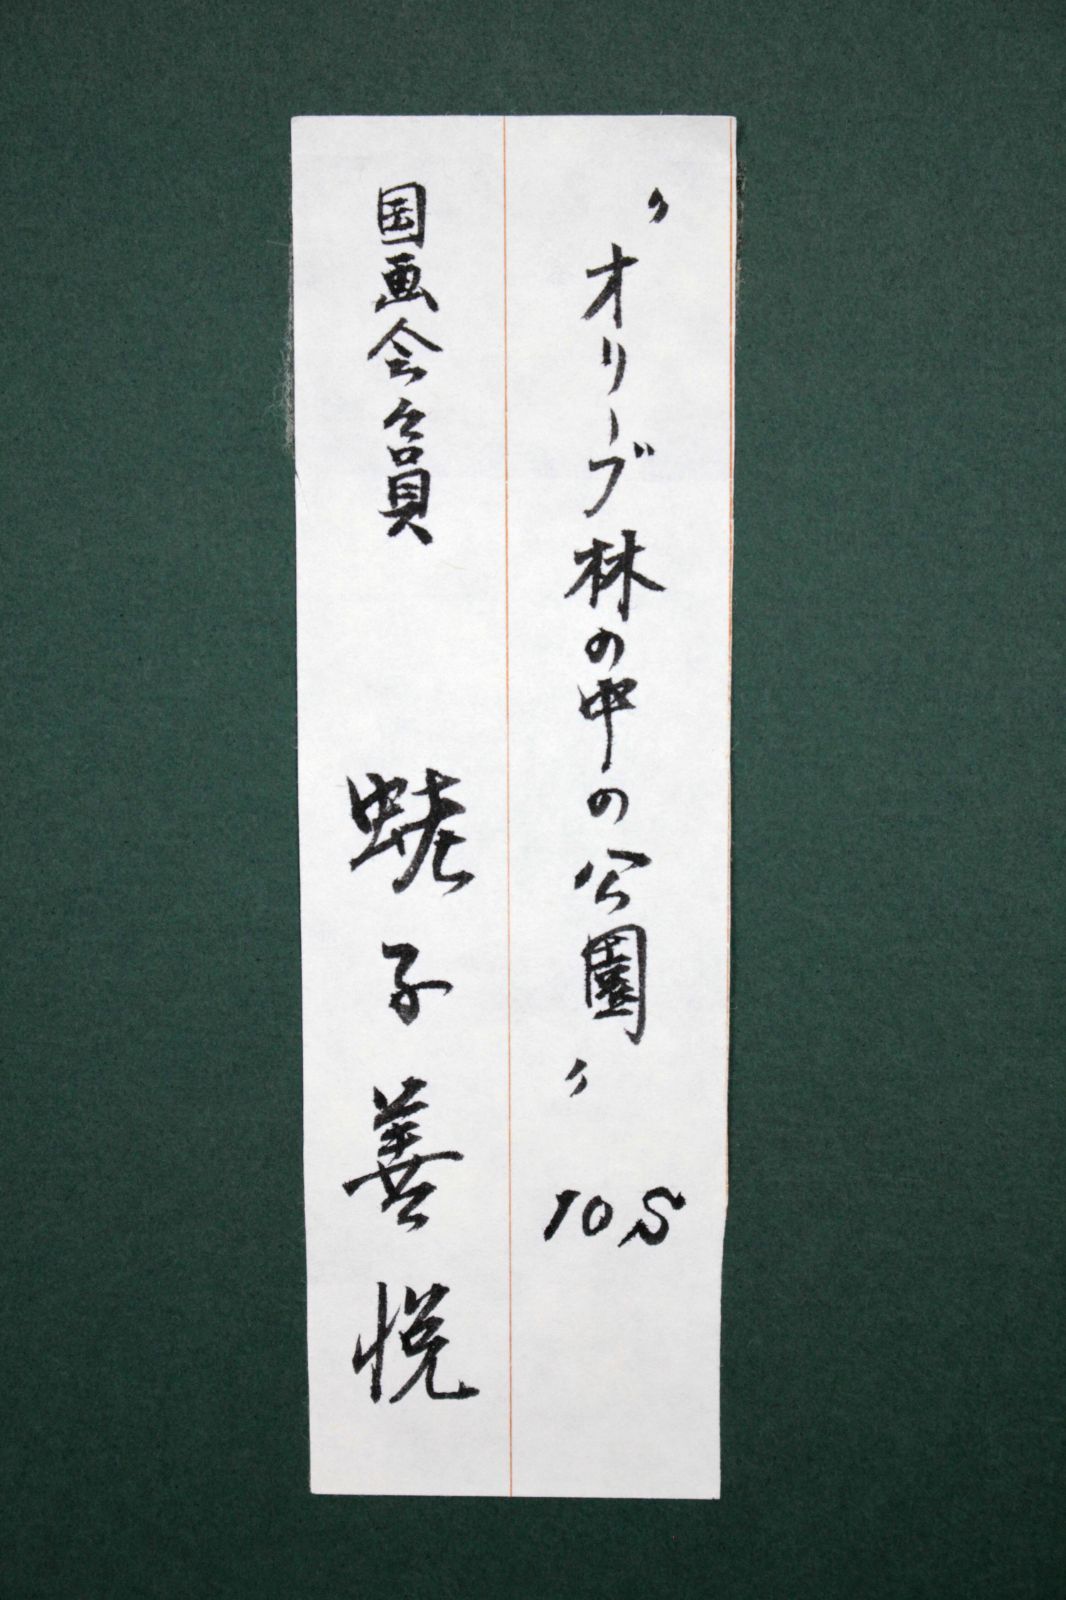 〃オリーブ林の中の公園〃 10S
国画会々員 蛯子善悦